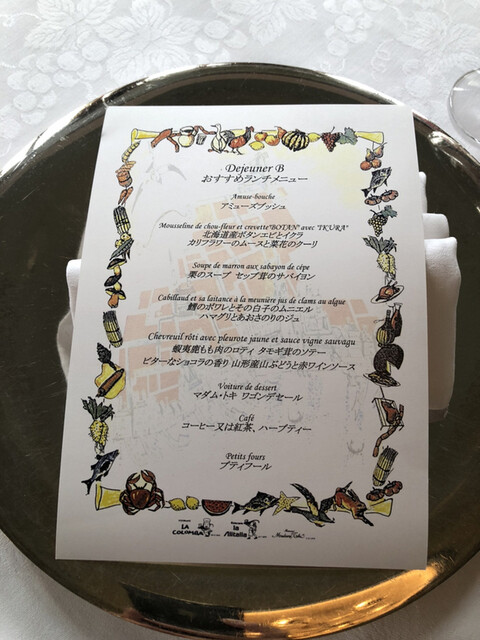 Dejeuner B
おすすめランチメニュー
Amuse-bouche
アミューズブッシュ
Mousseline de chou-fleur et crevette "BOTAN" avec "IKURA"
北海道産ボタンエビとイクラ
カリフラワーのムースと菜花のクーリ
Soupe de marron aux sabayon de cépe
栗のスープ セップ茸のサバイヨン
Cabillaud et sa laitance à la meunière jus de clams au algue
鱈のポワレとその白子のムニエル
ハマグリとあおさのりのジュ
Chevreuil rôti avec pleurote jaune et sauce vigne sauvagu
蝦夷鹿もも肉のロティ タモギ茸のソテー
ビターなショコラの香り 山形産山ぶどうと赤ワインソース
Voiture de dessert
マダム・トキ ワゴンデセール
Café
コーヒー又は紅茶、ハーブティー
Petits fours
プティフール
LA COLOMBA
la Alitalia